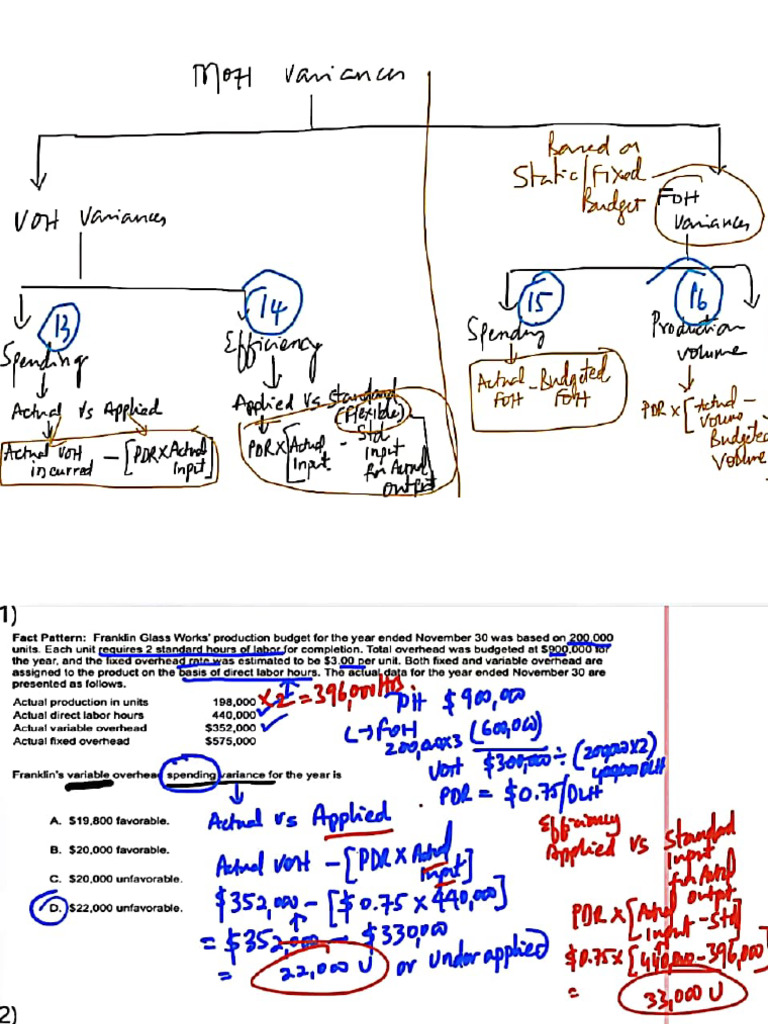 MOH Variances
Based on
Static/Fixed
Budget
FOH
Variances
VOH Variances
13
14
15
16
Spending
Efficiency
Spending
Production
Volume
Actual Vs Applied
Applied Vs Standard
(Flexible)
Actual VOH
incurred - [PDR X Actual
Input]
PDR X [Actual
Input - Std
Input
for Actual
Output
Actual
FOH - Budgeted
FOH
PDR X [Actual -
Volume
Budgeted
Volume
1)
Fact Pattern: Franklin Glass Works' production budget for the year ended November 30 was based on 200,000
units. Each unit requires 2 standard hours of labor for completion. Total overhead was budgeted at $900,000 for
the year, and the fixed overhead rate was estimated to be $3.00 per unit. Both fixed and variable overhead are
assigned to the product on the basis of direct labor hours. The actual data for the year ended November 30 are
presented as follows.
Actual production in units 198,000 X 2 = 396,000 Hrs.
Actual direct labor hours 440,000
Actual variable overhead $352,000
Actual fixed overhead $575,000
OH $900,000
FOH (600,000)
200,000x3
VOH $300,000 ÷ (200,000 x2)
400,000 DLH
PDR = $0.75/DLH
Franklin's variable overhead spending variance for the year is
A. $19,800 favorable.
B. $20,000 favorable.
C. $20,000 unfavorable.
D. $22,000 unfavorable.
Actual vs Applied
Actual VOH - [PDR X Actual
Input]
$352,000 - [$0.75 X 440,000]
= $352,000 - $330,000
= 22,000 U or Underapplied
Efficiency
Applied vs Standard
Input
for Actual
Output
PDR X [Actual
Input - Std]
$0.75x [440,000-396,000]
= 33,000 U
2)